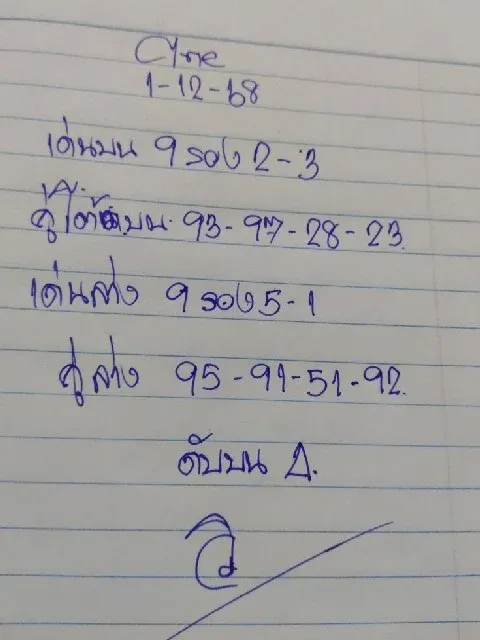 ไทย
1-12-68
เด่นบน 9 รอง 2-3
คู่ บน 93-97-28-23
เด่นล่าง 9 รอง 5-1
คู่ล่าง 95-91-51-92
ดับบน